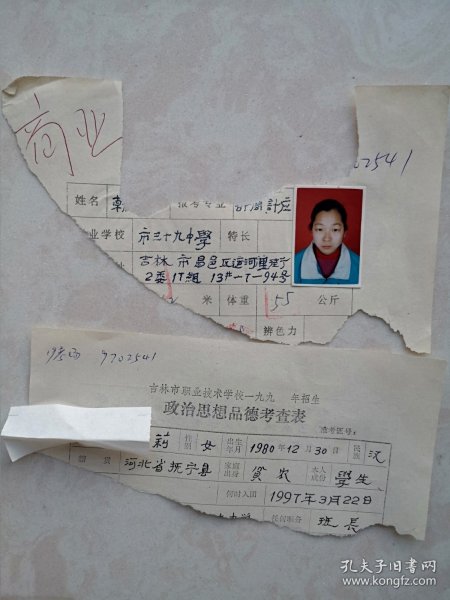 商业
02541
姓名 报考专业
业学校 市三十九中學 特长
吉林市昌邑区运河里
2委17組 13#-7-94号
米 体重 55 公斤
辨色力
9702541
吉林市职业技术学校一九九 年招生
政治思想品德考查表
准考证号:
莉 性别 女 出生年月 1980年12月30日 民族 汉
籍贯 河北省抚宁县 家庭出身 贫农 本人成份 學生
何时入团 1997年3月22日
任何职务 班长
孔夫子旧书网
www.kongfz.com